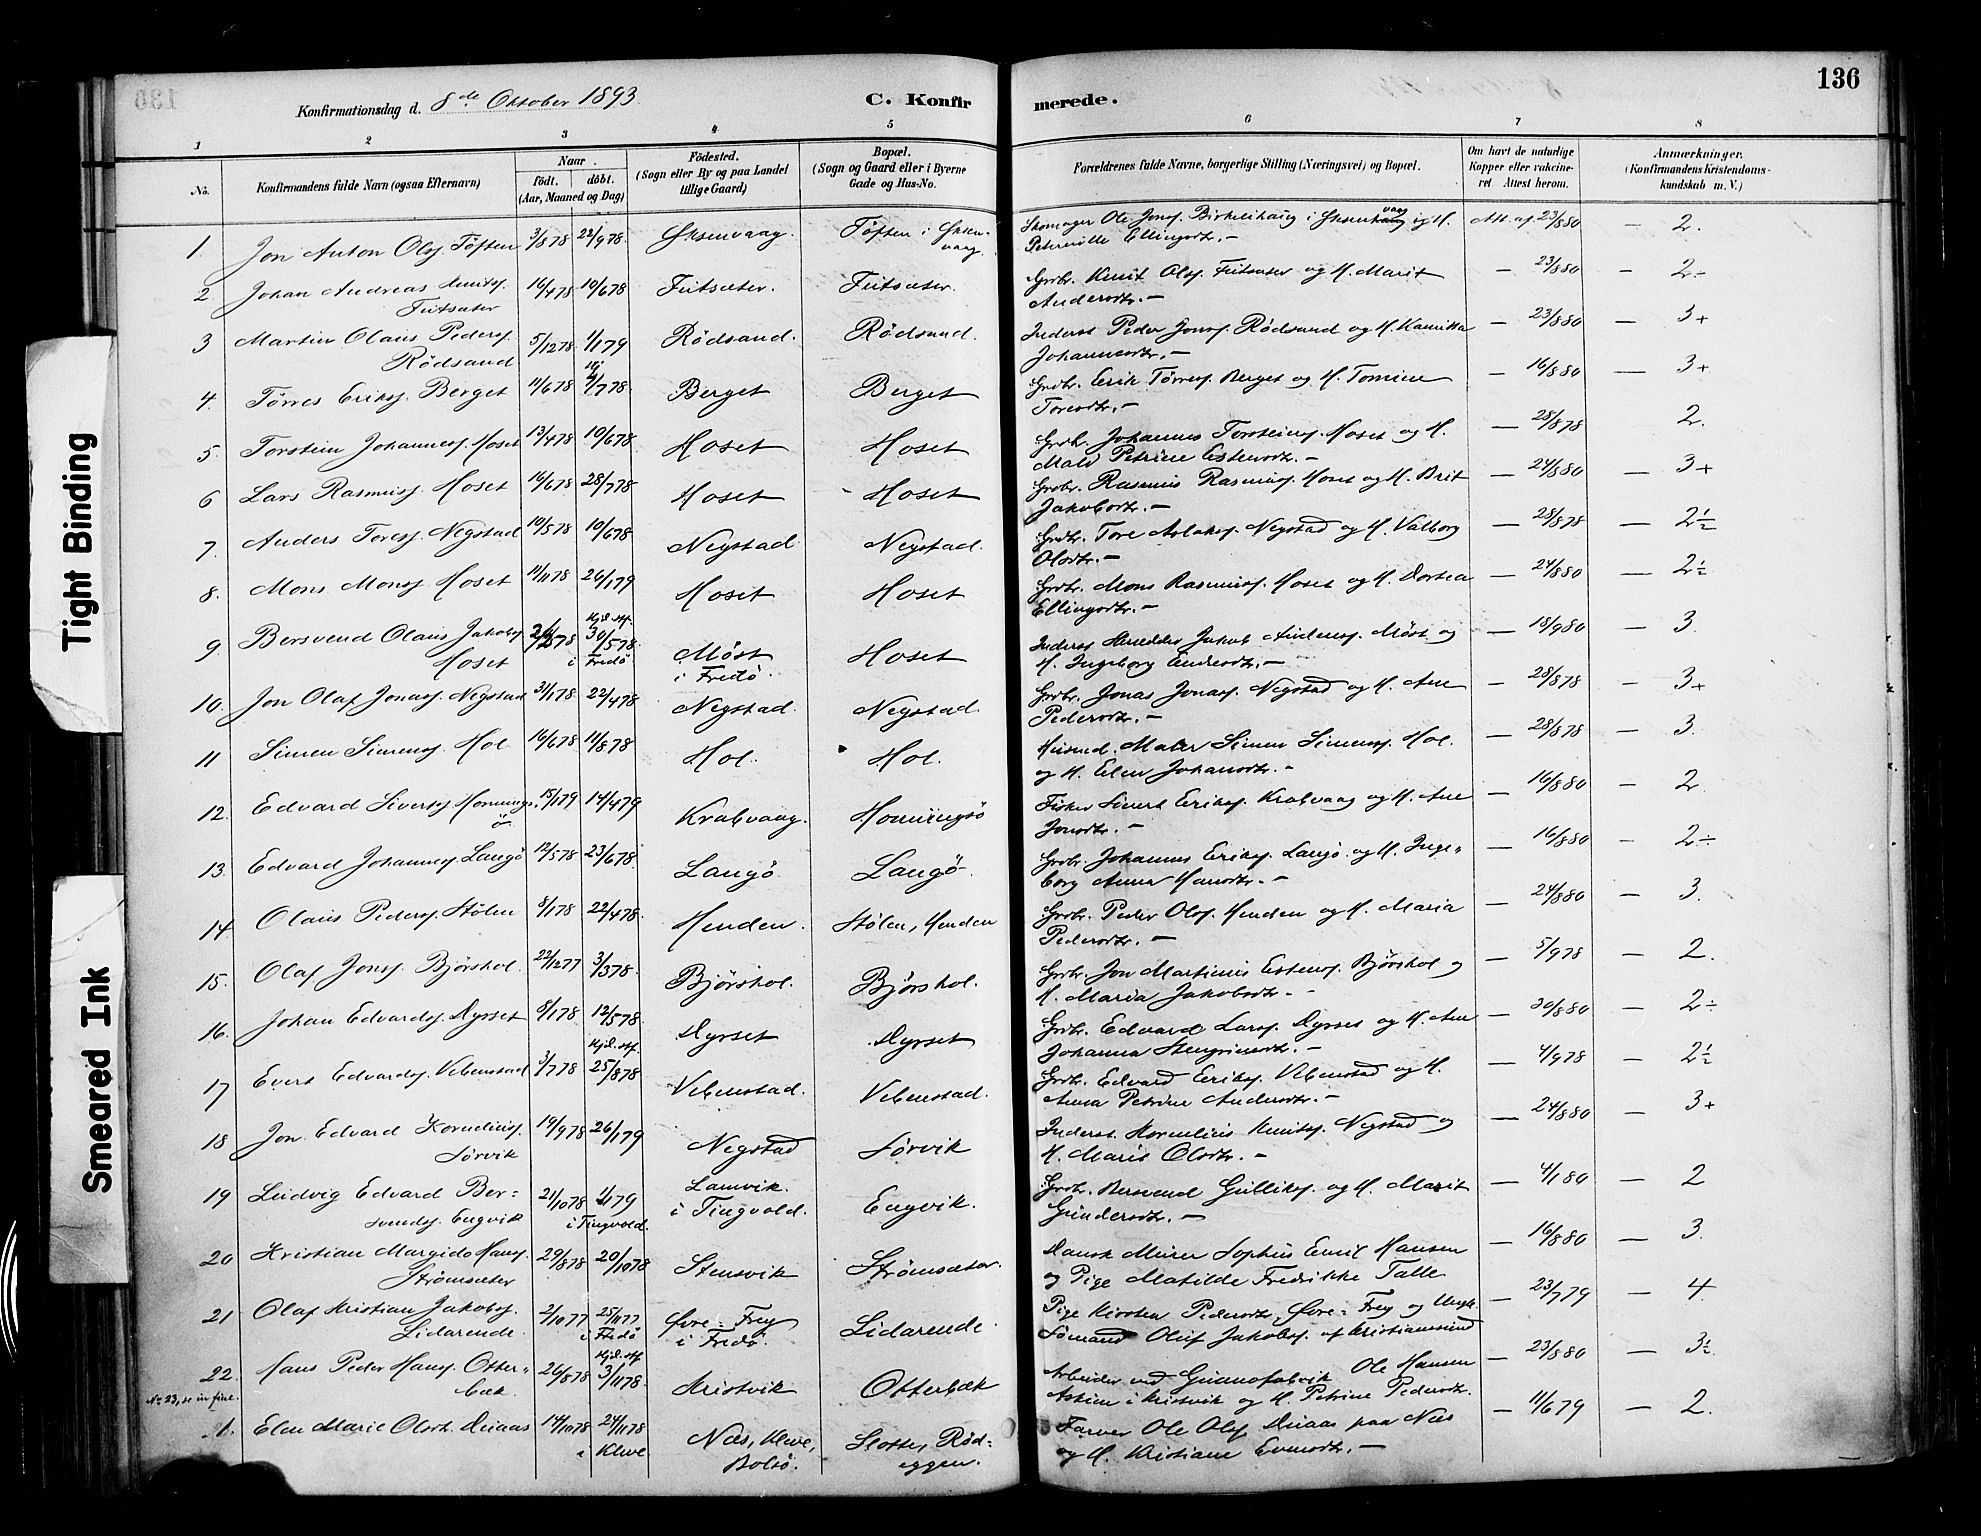 136
Konfirmationsdag d. 8de Oktober 1893
C. Konfirmerede.
1 2 3 4 5 6 7 8
No.
Konfirmandens fulde Navn (ogsaa Efternavn)
Naar
födt. döbt.
(Aar, Maaned og Dag)
Födested.
(Sogn eller By og paa Landet
tillige Gaard)
Bopæl.
(Sogn og Gaard eller i Byerne
Gade og Hus-No.
Forældrenes fulde Navne, borgerlige Stilling (Næringsvei) og Bopæl.
Om havt de naturlige
Kopper eller vakcine-
ret. Attest herom.
Anmærkninger.
(Konfirmandens Kristendoms-
kundskab m. V.)
1. Jon Anton Olsf. Töften 3/878 22/978. Eksenvaag. Töften i Eksen-
vaag.
Skomager Ole Jonsf. Birkeihaug i Eksenvaag og H.
Peternille Ellingsdtr. — Att. af 23/880 — 2.
2 Johan Andreas Knutsf.
Futsæter 16/478 10/678 Futsæter. Futsæter.
Grdbr. Knut Olsf. Futsæter og H. Marit
Andersdtr. — — 23/880 — 2÷
3 Martin Olaus Pedersf.
Rödsand 5/1278 1/179 Rödsand. Rödsand.
Inderst Peder Jonsf. Rödsand og H.
Johannesdtr. — — 23/880 — 3+
4. Törres Eriksf. Berget 11/678 Berget Berget
Grdbr. Erik Törresf. Berget og H.
Toresdtr. — — 16/880 — 3+
5. Torstein Johannesf. Hoset 13/478 10/678 Hoset Hoset
Grdbr. Johannes Torsteinsf. Hoset og H.
Malo Petrine Estensdtr. — — 28/878 2.
6 Lars Rasmusf. Hoset 16/678 28/778 Hoset Hoset
Grdbr. Rasmus Rasmusf. Hoset og H. Brit
Jakobsdtr. — — 24/880 — 3+
7. Anders Toresf. Negstad 10/578 10/678 Negstad Negstad.
Grdbr. Tore Aslaksf. Negstad og H. Valborg
Olsdtr. — — 28/878 — 2½
8. Mons Monsf. Hoset 11/1178 26/179 Hoset Hoset
Grdbr. Mons Rasmusf. Hoset og H. Dortea
Ellingsdtr. — — 24/880 — 2½
9 Bersvend Olaus Jakobsf.
Hoset Hjd. dp. 30/578. i Fredö Möst
i Fredö. Hoset
Inderst Jakob Andersf. Möst og
H. Ingeborg Endresdtr. — — 18/980 — 3.
10. Jon Olaf Jonasf. Negstad 31/178 22/478 Negstad. Negstad.
Grdbr. Jonas Jonasf. Negstad og H. Ane
Pedersdtr. — — 28/878 — 3+
11 Simen Simensf. Hol 16/678 11/878 Hol. Hol.
Husmd. Maler Simen Simensf. Hol.
og H. Elen Johansdtr. — — 28/878 — 3.
12. Edvard Siversf. Honnings-
ö 15/179 14/479 Krabvaag. Honningsö
Fisker Sivert Eriksf. Krabvaag og H. Ane
Jonsdtr. — — 16/880 — 2
13. Edvard Johannesf. Langö 12/578 23/678. Langö Langö.
Grdbr. Johannes Eriksf. Langö og H. Inge-
borg Anna Hansdtr. — — 16/880 — 2÷
14. Olaus Pedersf. Stölen 8/178 22/478. Henden. Stölen, Henden
Grdbr. Peder Olsf. Henden og H. Maria
Pedersdtr. — — 24/880 — 3.
15. Olaf Jonsf. Bjørshol. 22/1277 3/378. Bjørshol. Bjørshol.
Grdbr. Jon Martinus Estensf. Bjørshol og
H. Maria Jakobsdtr. — — 5/978 — 2.
16. Johan Edvardsf. Dyrset 8/178 12/578. Dyrset Dyrset
Grdbr. Edvard Larsf. Dyrset og H. Ane
Johanna Stengrimsdtr. — — 20/880 — 2÷
17 Evert Edvardsf. Vebenstad 3/778 Hjd. dp. 25/878 Vebenstad. Vebenstad.
Grdbr. Edvard Eriksf. Vebenstad og H.
Anna Petrine Andersdtr. — — 4/978 — 2½
18 Jon Edvard Korneliusf.
Sörvik 19/978 26/179 Negstad Sörvik
Inderst. Kornelius Knutsf. Negstad og
H. Marit Olsdtr. — — 24/880 — 3+
19 Ludvig Edvard Ber-
svendsf. Engvik 21/1078 1/179 i Tingvold. Lamvik.
i Tingvold. Engvik.
Grdbr. Bersvend Gulliksf. og H. Marit
Gundersdtr. — — 4/180 — 2
20 Kristian Margido Hansf.
Strömsæter 29/878 20/1078 Stensvik Strömsæter.
Dansk Murer Sophus Emil Hansen
og Pige Matilde Fredrikke Talle — 16/880 — 3.
21 Olaf Kristian Jakobsf.
Lidarende. 2/1077 25/1177 i Fredö Övre-Frey
i Fredö. Lidarende.
Pige Kirsten Pedersdtr, Övre-Frey og Ungk.
Sömand Oluf Jakobsf. af Kristianssund — 23/779 — 4.
22. Hans Peder Hansf. Otter-
bæk. 26/878 Hjd. dp. 3/1178. Kristvik Otterbæk
Arbeider ved Guanofabrik Ole Hansen
Askien i Kristvik og H. Petrine Pedersdtr. — 23/880 — 3½.
No 23, se in fine.
1. Elen Marie Olsdt. Duaas 14/1078 24/1178 i Kleve Næs, Kleve,
Bolsö. Slotte, Röd-
eggen.
Farver Ole Olsf. Duaas paa Næs
og H. Kristiane Evensdtr. — — 11/679 — 2.
Tight Binding
Smeared Ink